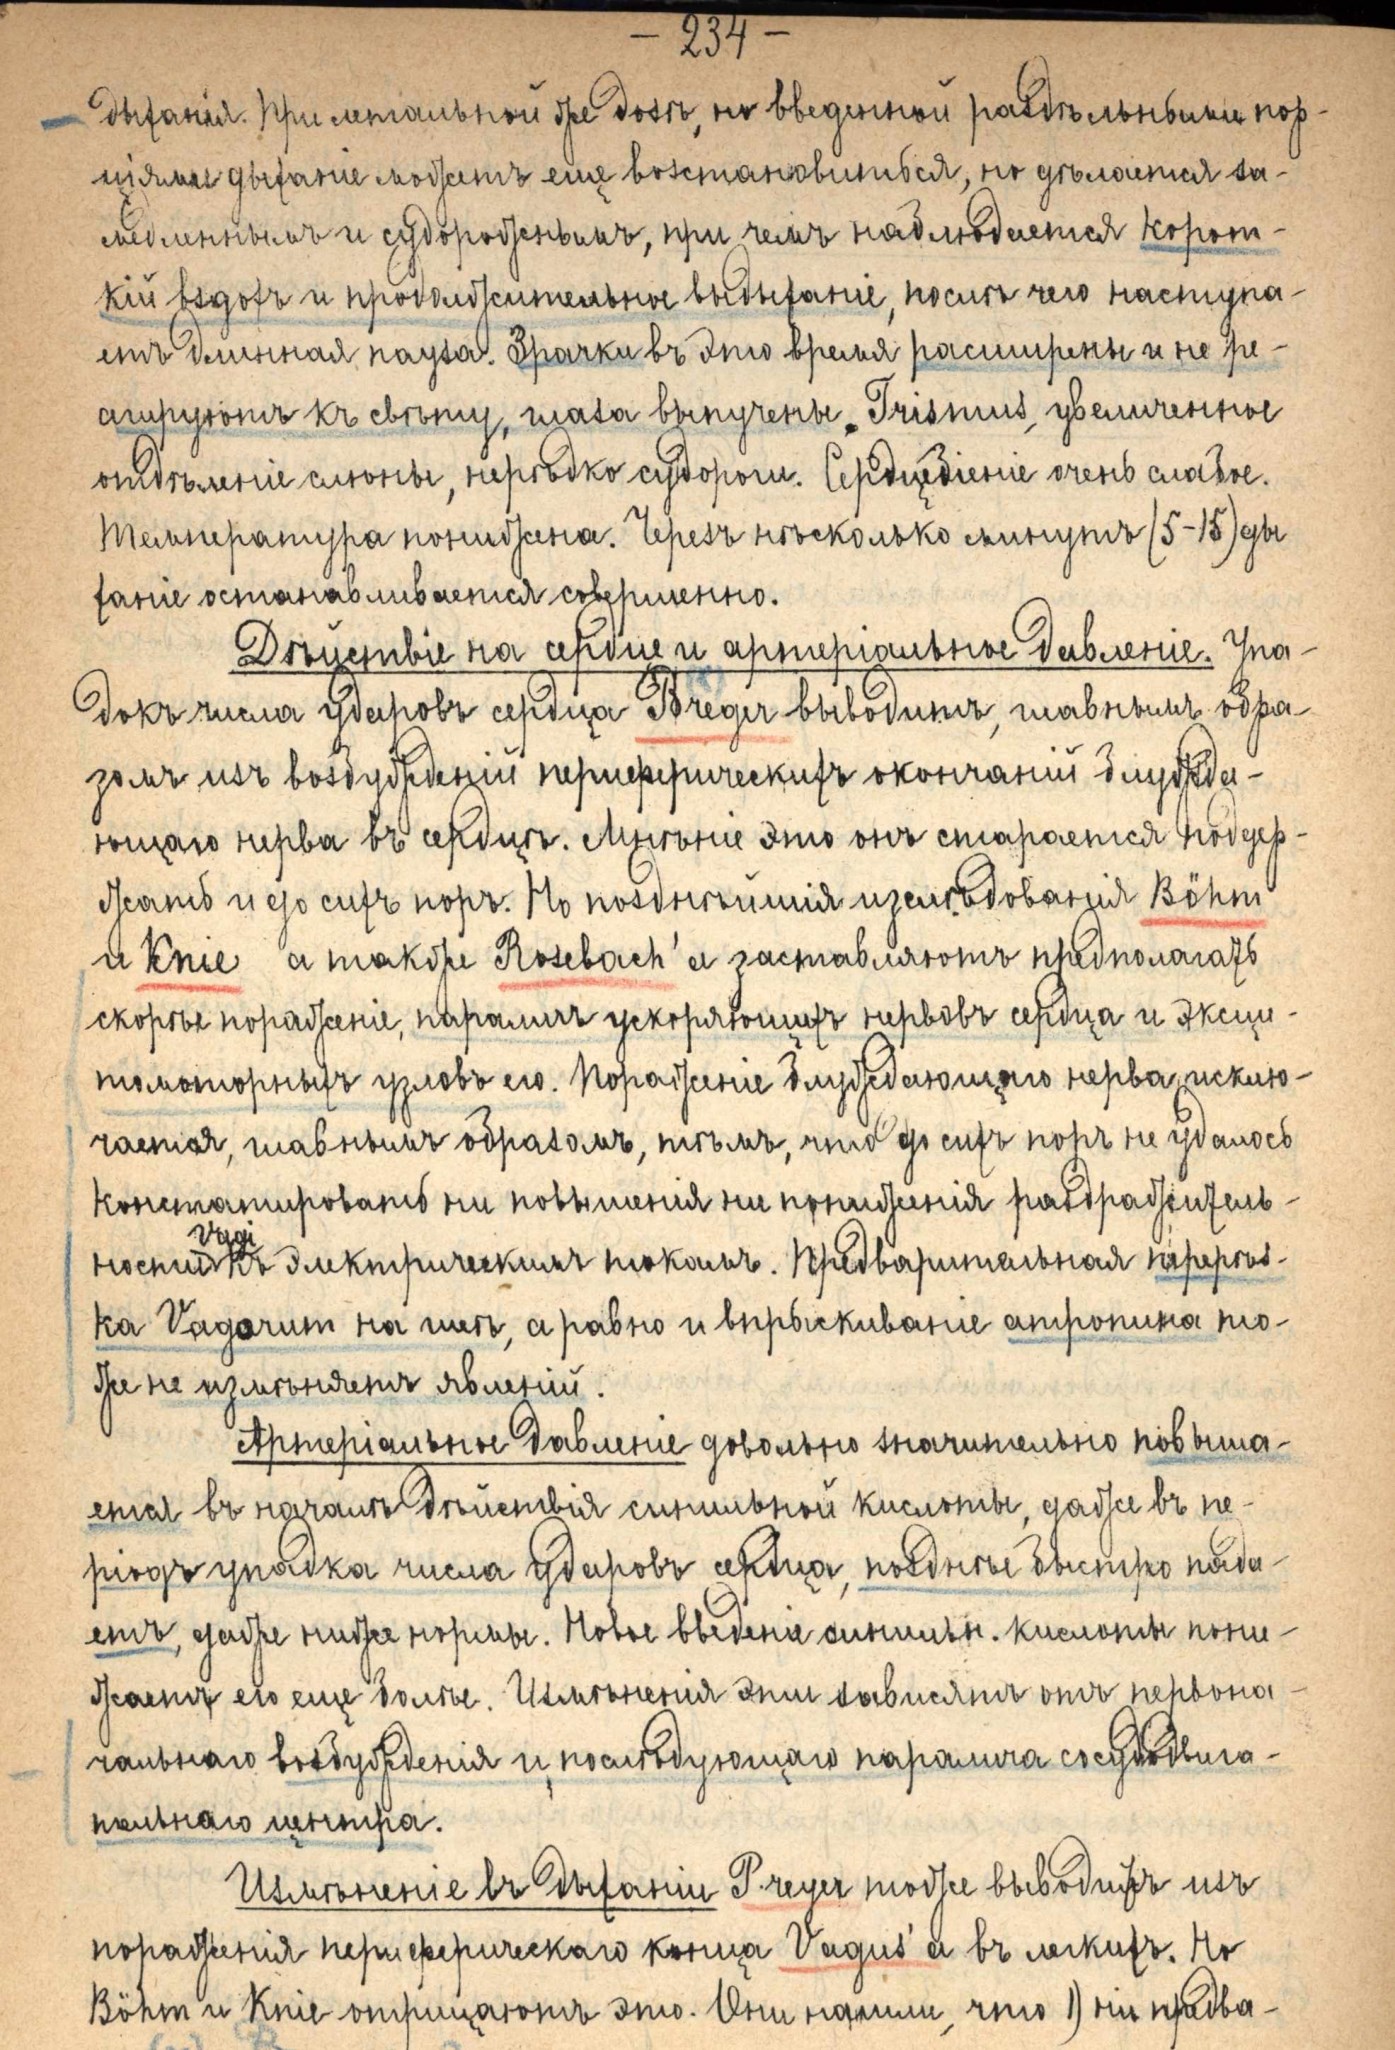 — 234 —
дыханія. При летальной же дозѣ, но введенной раздѣльными пор-
ціями дыханіе можетъ еще возстановиться, но дѣлается за-
медленнымъ и судорожнымъ, при чемъ наблюдается корот-
кій вздохъ и продолжительное выдыханіе, послѣ чего наступа-
етъ длинная пауза. Зрачки въ это время расширены и не ре-
агируютъ къ свѣту, глаза выпучены. Trismus, увеличенное
отдѣленіе слюны, нерѣдко судороги. Сердцебіеніе очень слабое.
Температура понижена. Черезъ нѣсколько минутъ (5-15) ды
ханіе останавливается совершенно.
Дѣйствіе на сердце и артеріальное давленіе. Упа-
докъ числа ударовъ сердца Preger выводитъ, главнымъ обра-
зомъ изъ возбужденій периферическихъ окончаній блужда-
ющаго нерва въ сердцѣ. Мнѣніе это онъ старается поддер-
жать и до сихъ поръ. Но позднѣйшія изслѣдованія Böhm
и Knie а также Rosebach'а заставляютъ предполагать
скорѣе пораженіе, параличъ ускоряющихъ нервовъ сердца и эксци-
томоторныхъ узловъ его. Пораженіе блуждающаго нерва исклю-
чается, главнымъ образомъ, тѣмъ, что до сихъ поръ не удалось
констатировать ни повышенія ни пониженія раздражитель-
ности Vagi къ электрическимъ токамъ. Предварительная перерѣз-
ка Vagorum на шеѣ, а равно и впрыскиваніе атропина то-
же не измѣняетъ явленій.
Артеріальное давленіе довольно значительно повыша-
ется въ началѣ дѣйствія синильной кислоты, даже въ пе-
ріодъ упадка числа ударовъ сердца, позднѣе быстро пада-
етъ, даже ниже нормы. Новое введеніе синильн. кислоты пони-
жаетъ его еще болѣе. Измѣненія эти зависятъ отъ первона-
чальнаго возбужденія и послѣдующаго паралича сосудодвига-
тельнаго центра.
Измѣненіе въ дыханіи Preyer тоже выводитъ изъ
пораженія периферическаго конца Vagus'а въ легкихъ. Но
Böhm и Knie отрицаютъ это. Они нашли, что 1) ни предва-